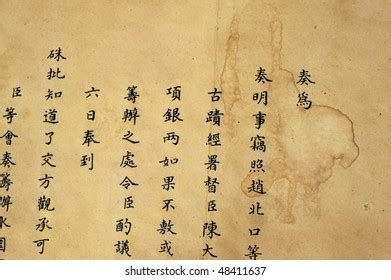 奏為
奏明事竊照趙北口等
古蹟經署督臣陳大
項銀两如果不敷或
籌辦之處令臣酌議
六日奉到
硃批知道了交方觀承可
臣等會奏籌辦
shutterstock.com · 48411637